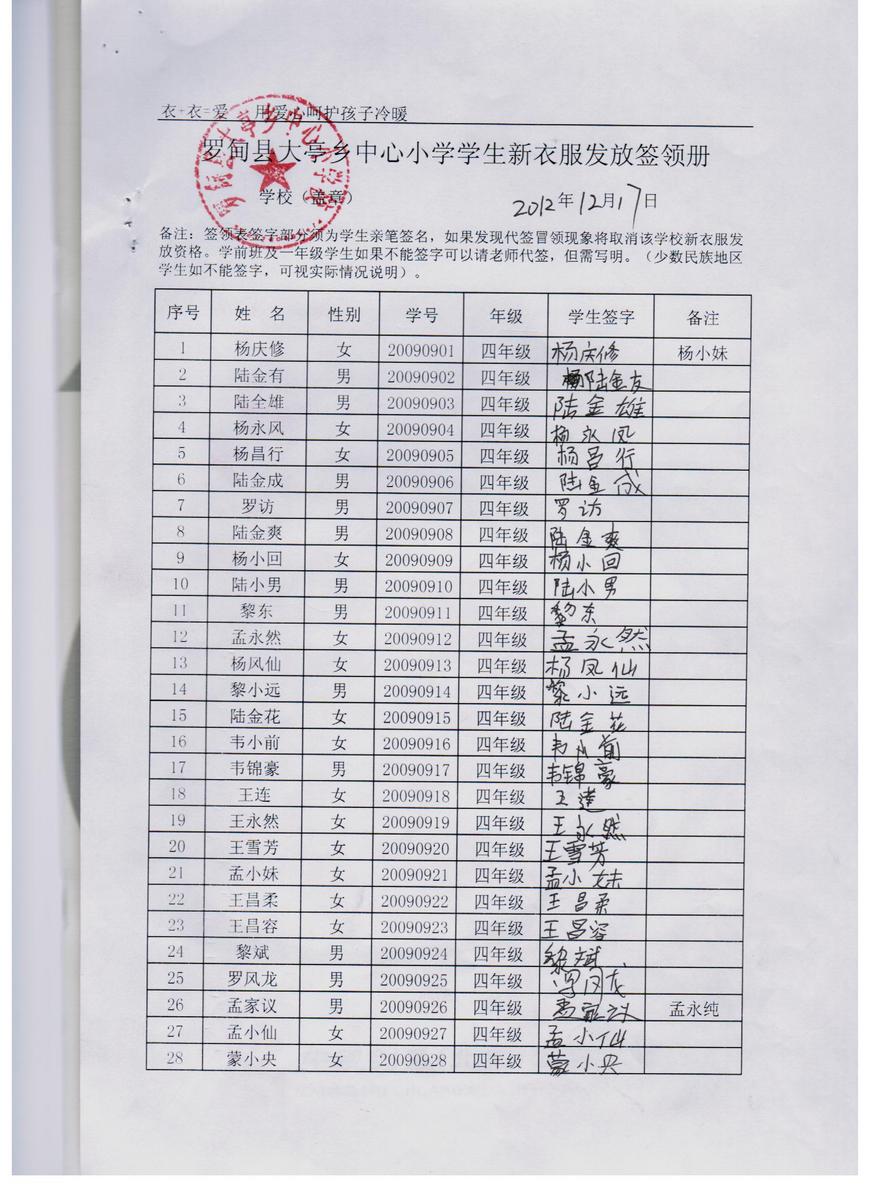 衣+衣=爱 用爱心呵护孩子冷暖
罗甸县大亭乡中心小学学生新衣服发放签领册
罗甸县大亭乡中心小学校
学校（盖章） 2012年12月17日
备注：签领表签字部分须为学生亲笔签名，如果发现代签冒领现象将取消该学校新衣服发
放资格。学前班及一年级学生如果不能签字可以请老师代签，但需写明。（少数民族地区
学生如不能签字，可视实际情况说明）。
序号 姓 名 性别 学号 年级 学生签字 备注
1 杨庆修 女 20090901 四年级 杨庆修 杨小妹
2 陆金有 男 20090902 四年级 陆金友
3 陆全雄 男 20090903 四年级 陆金雄
4 杨永风 女 20090904 四年级 杨永凤
5 杨昌行 女 20090905 四年级 杨昌行
6 陆金成 男 20090906 四年级 陆金成
7 罗访 男 20090907 四年级 罗访
8 陆金爽 男 20090908 四年级 陆金爽
9 杨小回 女 20090909 四年级 杨小回
10 陆小男 男 20090910 四年级 陆小男
11 黎东 男 20090911 四年级 黎东
12 孟永然 女 20090912 四年级 孟永然
13 杨风仙 女 20090913 四年级 杨凤仙
14 黎小远 男 20090914 四年级 黎小远
15 陆金花 女 20090915 四年级 陆金花
16 韦小前 女 20090916 四年级 韦小前
17 韦锦豪 男 20090917 四年级 韦锦豪
18 王连 女 20090918 四年级 王连
19 王永然 女 20090919 四年级 王永然
20 王雪芳 女 20090920 四年级 王雪芳
21 孟小妹 女 20090921 四年级 孟小妹
22 王昌柔 女 20090922 四年级 王昌柔
23 王昌容 女 20090923 四年级 王昌容
24 黎斌 男 20090924 四年级 黎斌
25 罗风龙 男 20090925 四年级 罗风龙
26 孟家议 男 20090926 四年级 孟家议 孟永纯
27 孟小仙 女 20090927 四年级 孟小仙
28 蒙小央 女 20090928 四年级 蒙小央